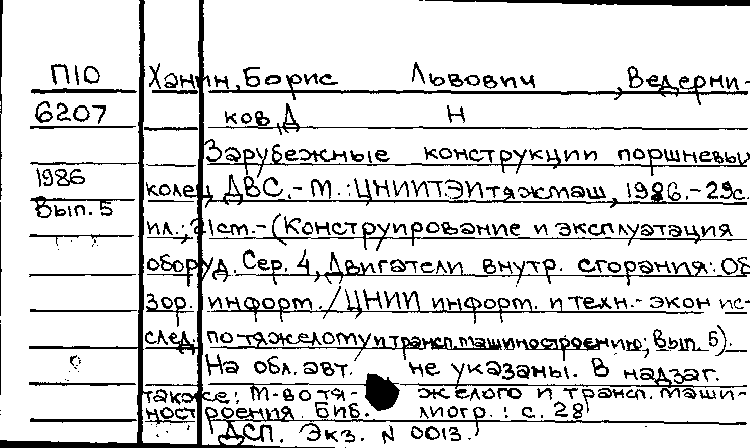 П10 Ханин, Борис Львович, Ведерни-
6207 ков, Д Н
Зарубежные конструкции поршневы
1986 колец ДВС.-М.: ЦНИИТЭИтяжмаш, 1986.-29с.
Вып. 5
ил.; 21см.-(Конструирование и эксплуатация
оборуд. Сер. 4, Двигатели внутр. сгорания: Об
зор. информ. / ЦНИИ информ. и техн.-экон ис-
след. по тяжелому и трансп. машиностроению; Вып. 5).
На обл. авт. не указаны. В надзаг.
также: М-во тя- желого и трансп. маши-
ностроения. Биб. лиогр.: с. 28
ДСП. Экз. N 0013.